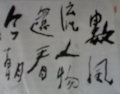 數風
流人物
還看
今朝